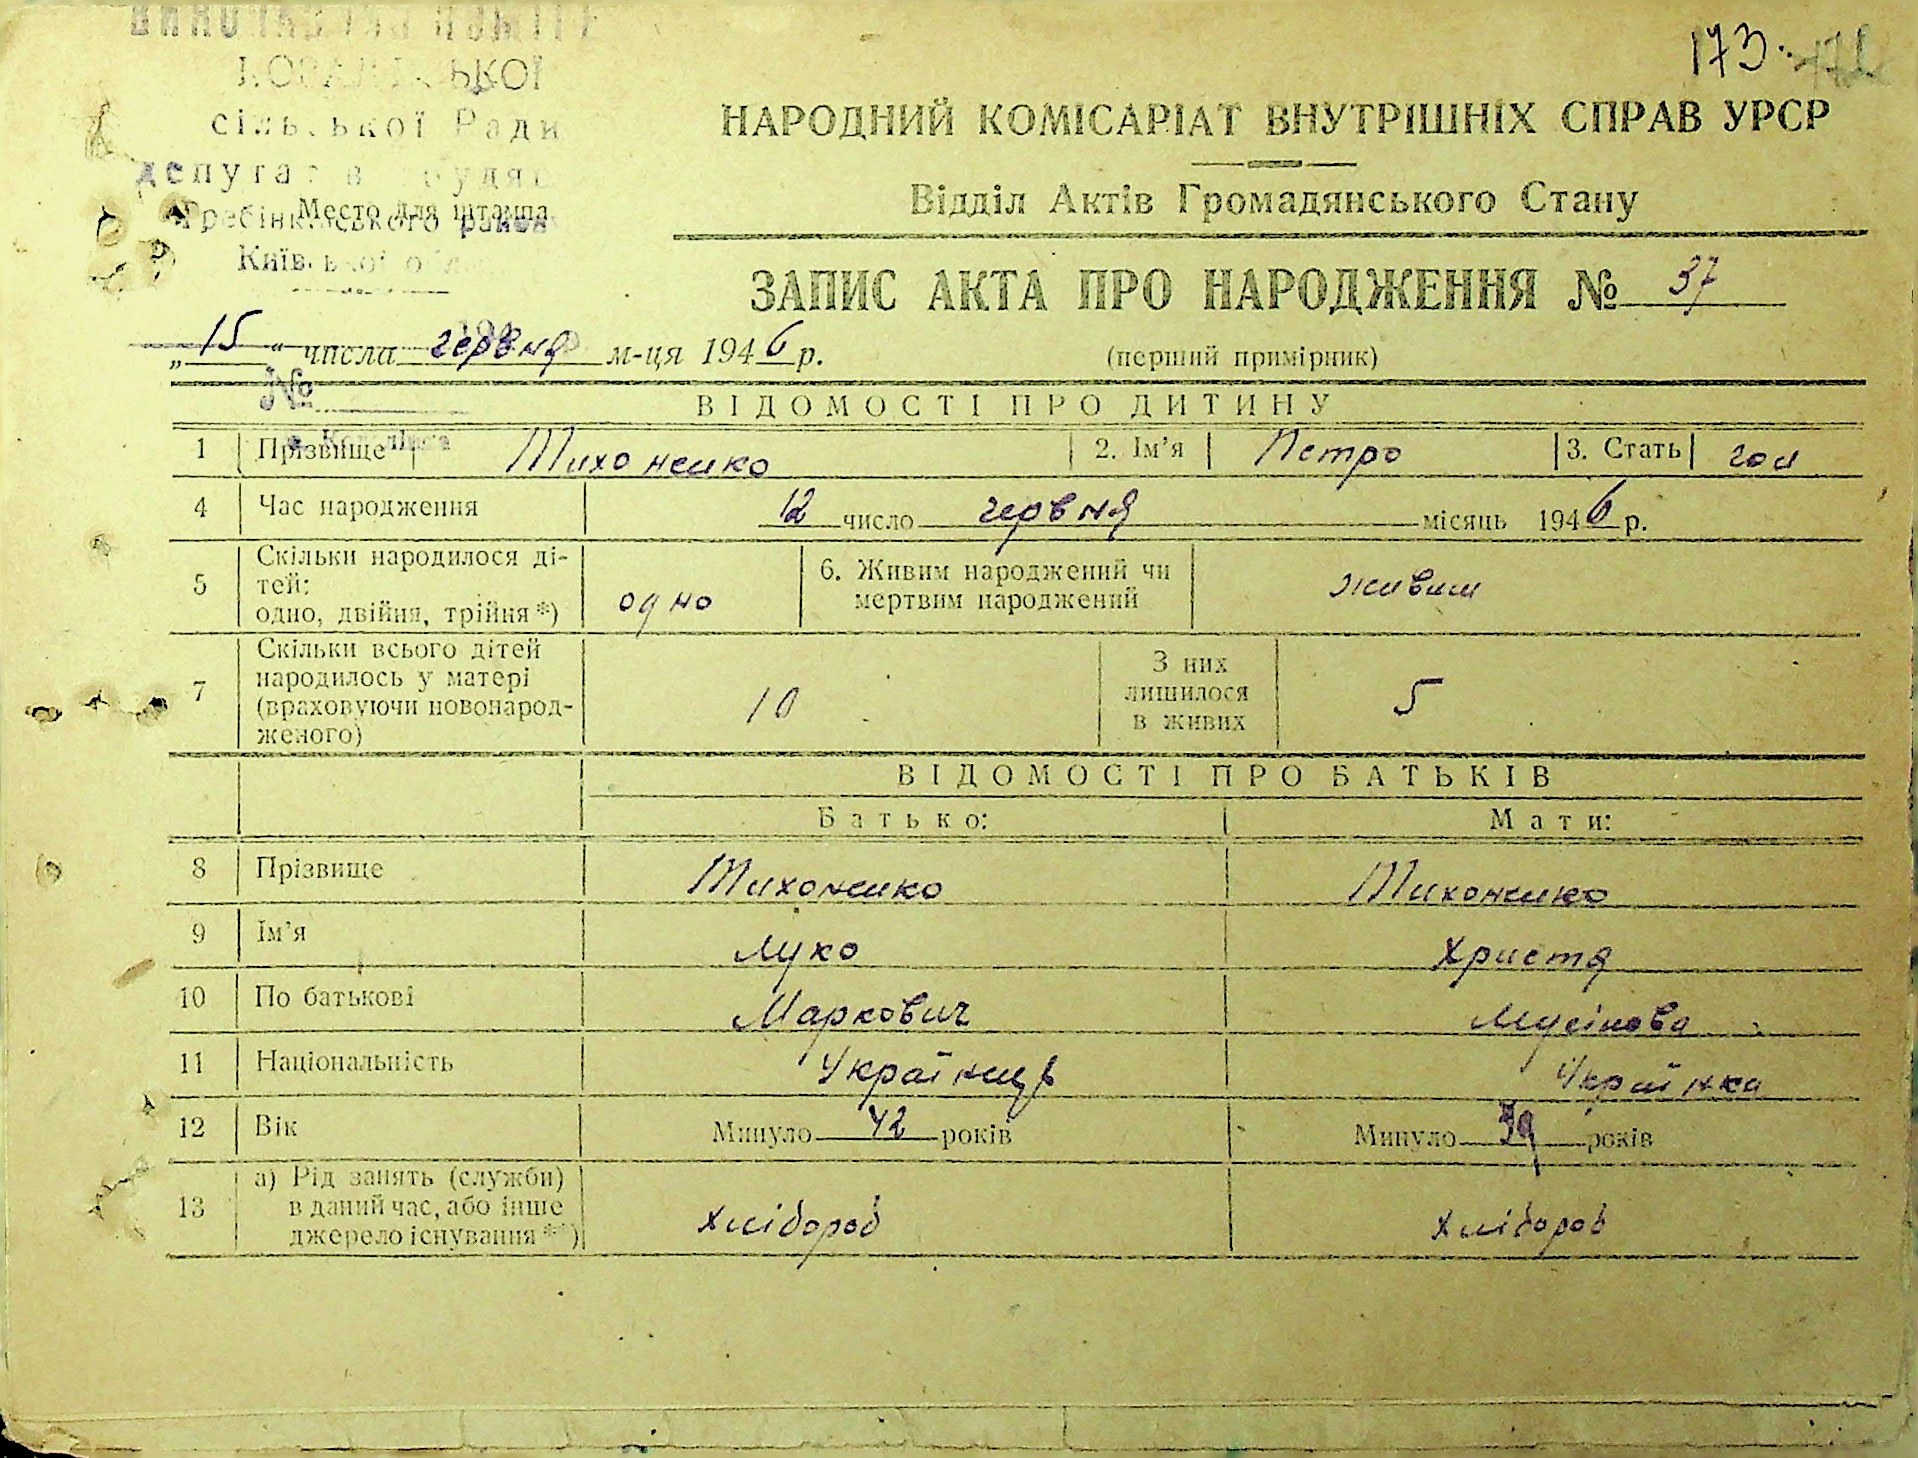 173.
сільської Ради
Место для штампа
Гребінківського району
Київської
НАРОДНИЙ КОМІСАРІАТ ВНУТРІШНІХ СПРАВ УРСР
Відділ Актів Громадянського Стану
ЗАПИС АКТА ПРО НАРОДЖЕННЯ № 37
„15“ числа червня м-ця 1946 р.
(перший примірник)
№
ВІДОМОСТІ ПРО ДИТИНУ
1 Прізвище Тихоненко 2. Ім’я Петро 3. Стать чол
4 Час народження 12 число червня місяць 1946 р.
5 Скільки народилося ді-
тей:
одно, двійня, трійня *) одно
6. Живим народжений чи
мертвим народжений живим
7 Скільки всього дітей
народилось у матері
(враховуючи новонарод-
женого) 10
З них
лишилося
в живих 5
ВІДОМОСТІ ПРО БАТЬКІВ
Батько: Мати:
8 Прізвище Тихоненко Тихоненко
9 Ім’я Луко Христя
10 По батькові Маркович Мусіновa
11 Національність Українець Українка
12 Вік Минуло 42 років Минуло 39 років
13 а) Рід занять (служби)
в даний час, або інше
джерело існування **) хлібороб хлібороб